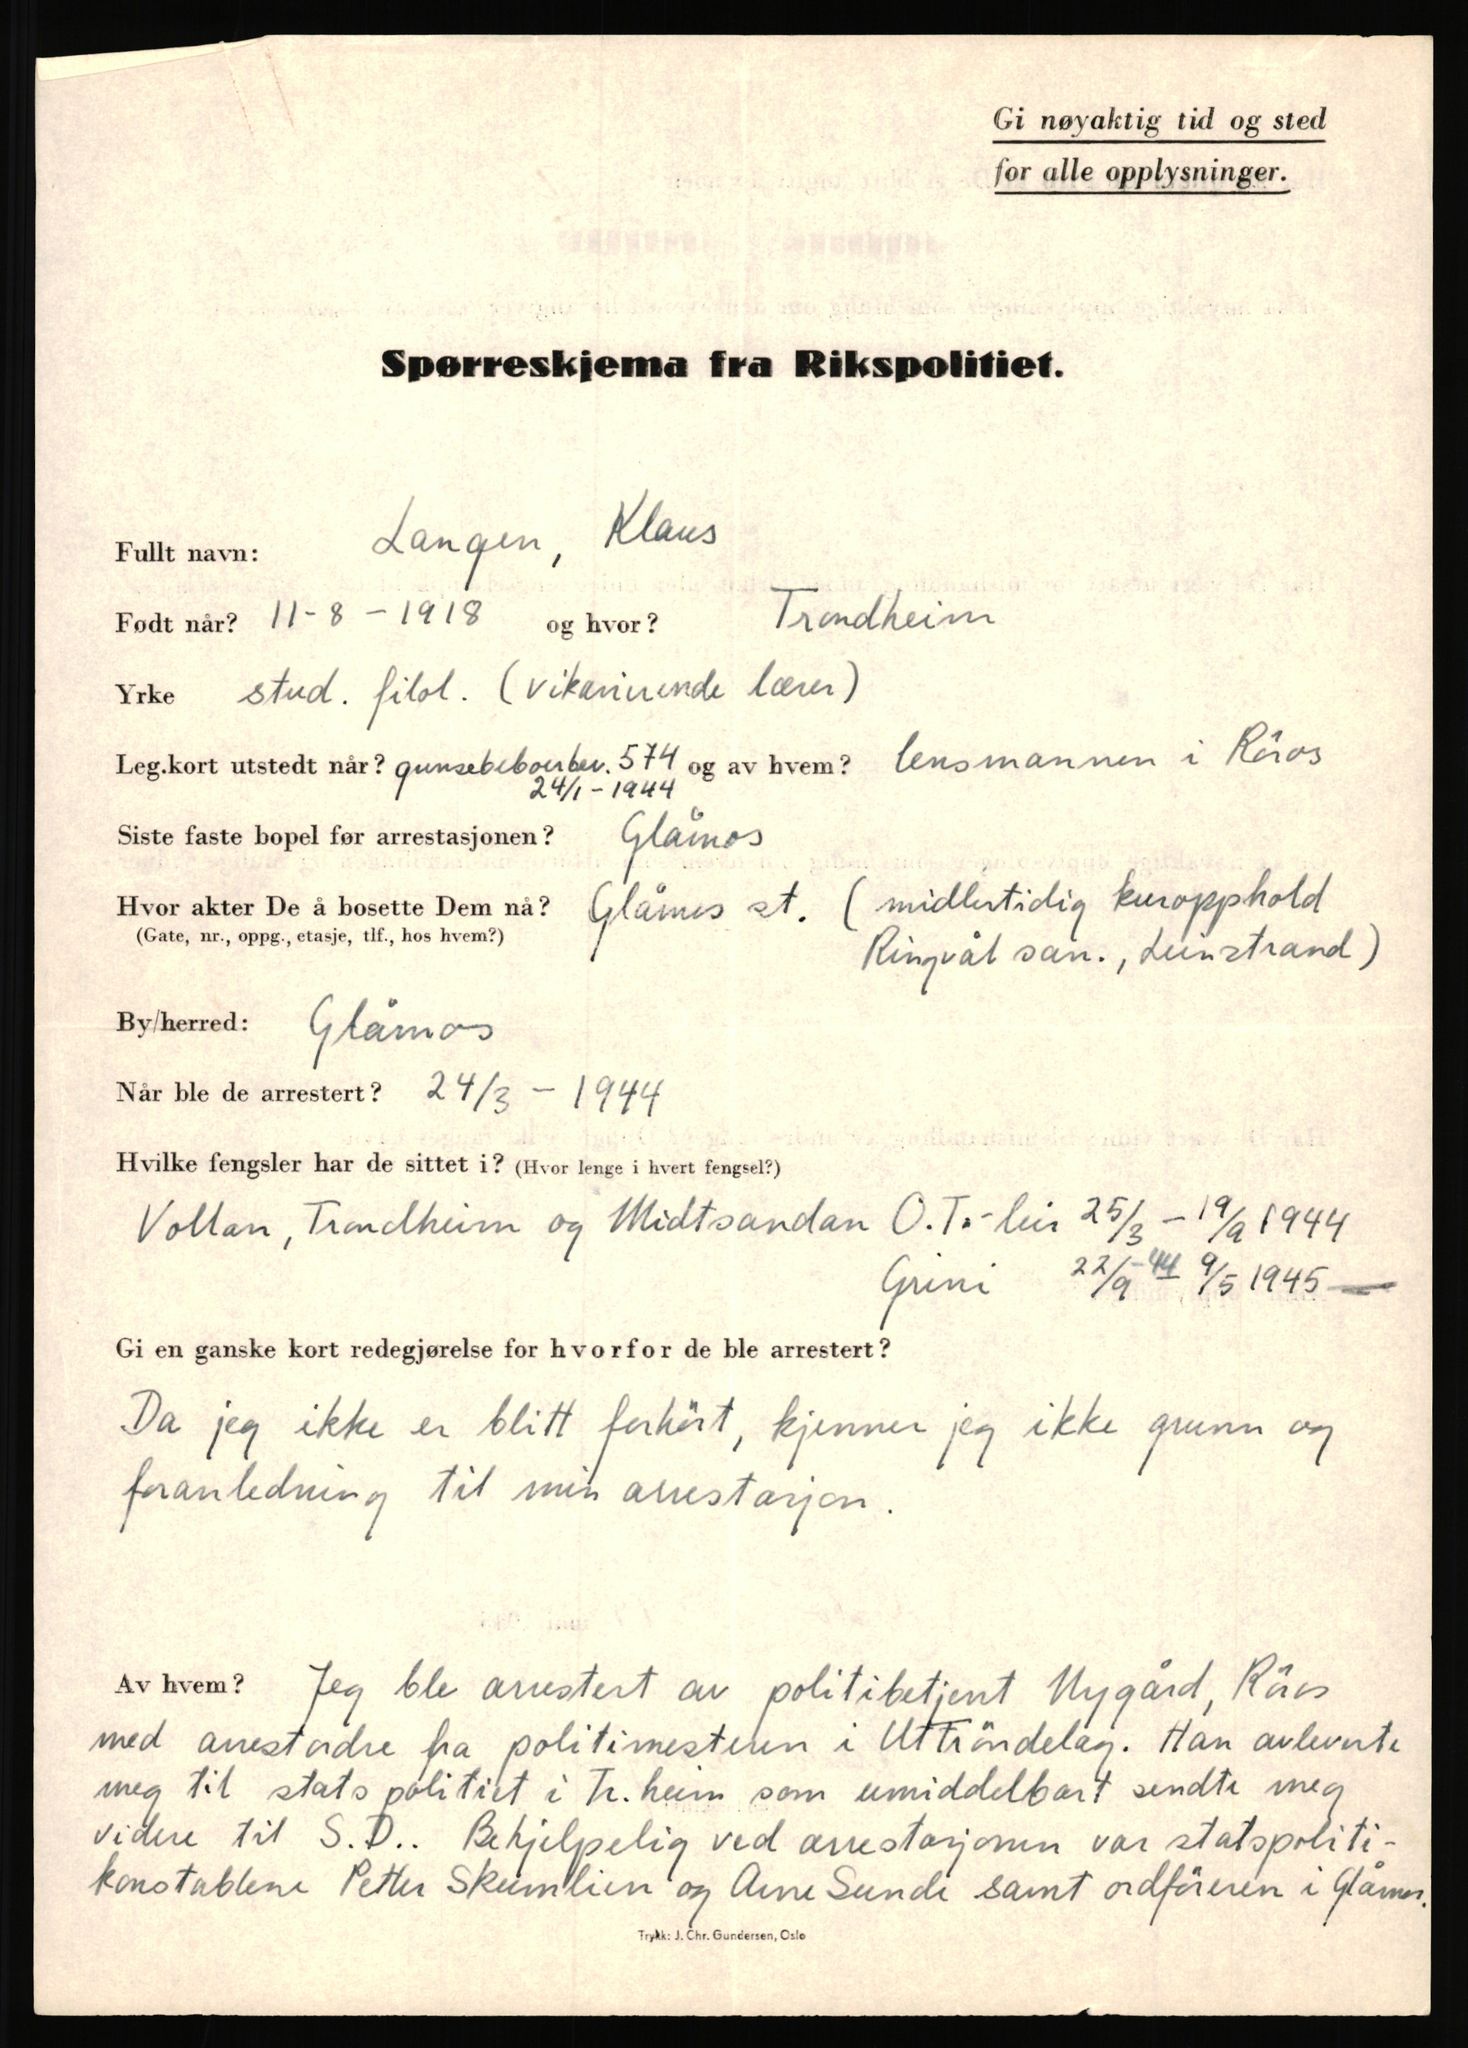 Gi nøyaktig tid og sted
for alle opplysninger.
Spørreskjema fra Rikspolitiet.
Fullt navn: Langen, Klaus
Født når? 11-8-1918 og hvor? Trondheim
Yrke stud. filol. (vikarierende lærer)
Leg.kort utstedt når? grensebeboerbev. 574 og av hvem? lensmannen i Röros
24/1-1944
Siste faste bopel før arrestasjonen? Glåmos
Hvor akter De å bosette Dem nå? Glåmos st. (midlertidig kuropphold
(Gate, nr., oppg., etasje, tlf., hos hvem?) Ringvål san., Leinstrand)
By/herred: Glåmos
Når ble de arrestert? 24/3 - 1944
Hvilke fengsler har de sittet i? (Hvor lenge i hvert fengsel?)
Vollan, Trondheim og Midtsandan O.T.-leir 25/3 - 19/9 1944
Grini 22/9-44 9/5 1945 —
Gi en ganske kort redegjørelse for hvorfor de ble arrestert?
Da jeg ikke er blitt forhört, kjenner jeg ikke grunn og
foranledning til min arrestasjon.
Av hvem? Jeg ble arrestert av politibetjent Nygård, Röros
med arrestordre fra politimesteren i Uttröndelag. Han avleverte
meg til statspolitiet i Tr.heim som umiddelbart sendte meg
videre til S.D.. Behjelpelig ved arrestasjonen var statspoliti-
konstablene Petter Skumlien og Arne Sunde samt ordföreren i Glåmos.
Trykk: J. Chr. Gundersen, Oslo